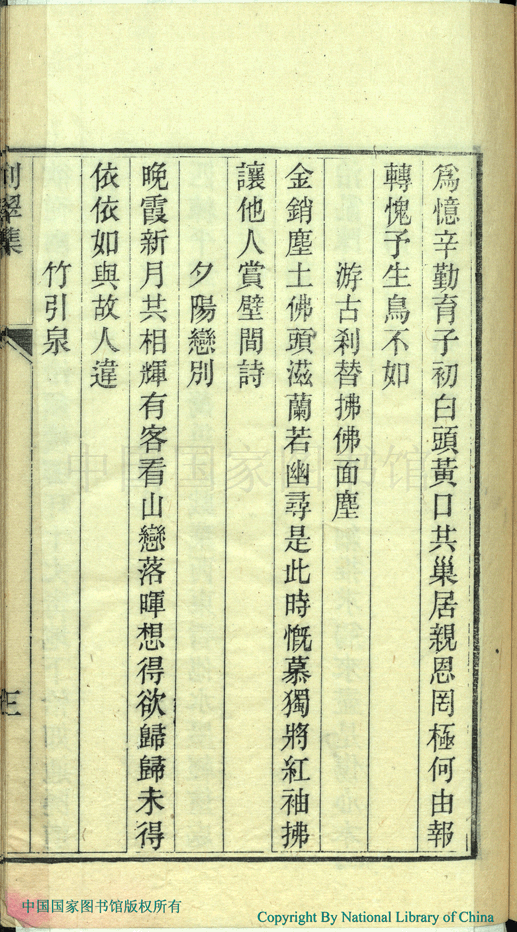 爲憶辛勤育子初白頭黃口共巢居親恩罔極何由報
轉愧予生鳥不如
游古刹替拂佛面塵
金銷塵土佛頭滋蘭若幽尋是此時慨慕獨將紅袖拂
讓他人賞壁間詩
夕陽戀別
晚霞新月共相輝有客看山戀落暉想得欲歸歸未得
依依如與故人違
竹引泉
集
三
中国国家图书馆
中国国家图书馆版权所有
Copyright By National Library of China